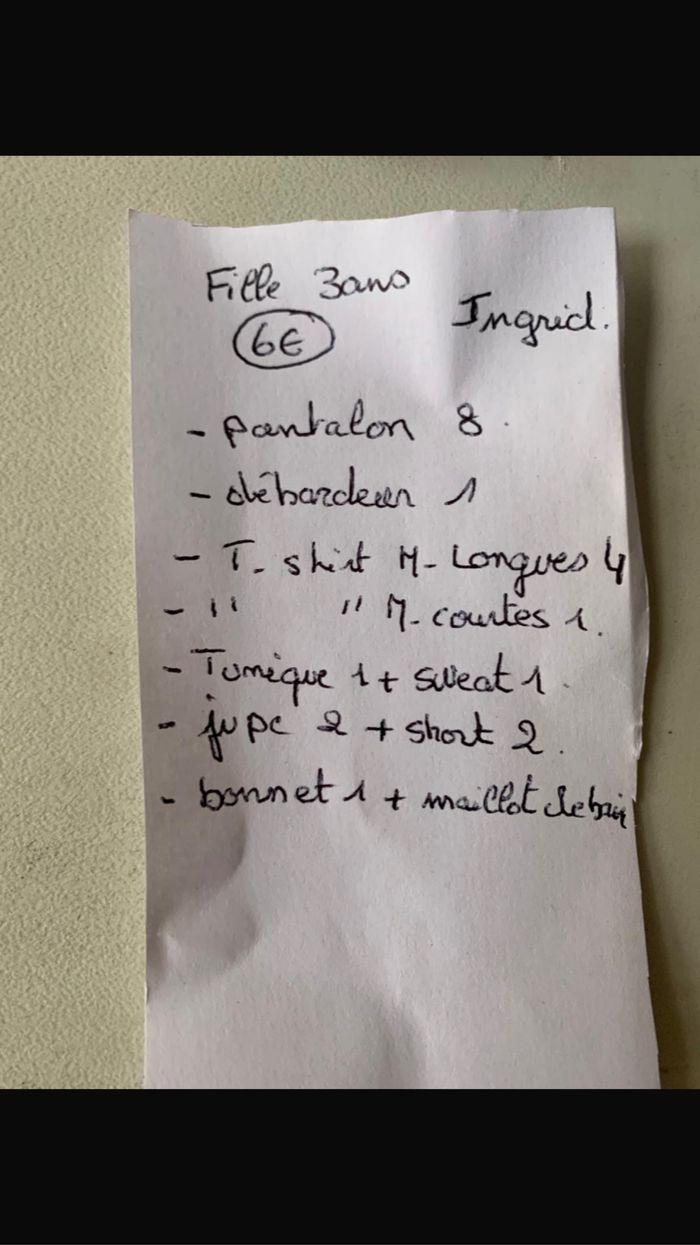 Fille 3ans
6€
Ingrid.
- pantalon 8.
- débardeur 1
- T-shirt M-Longues 4
- " " M-courtes 1.
- Tunique 1 + sweat 1.
- jupe 2 + short 2.
- bonnet 1 + maillot de bain